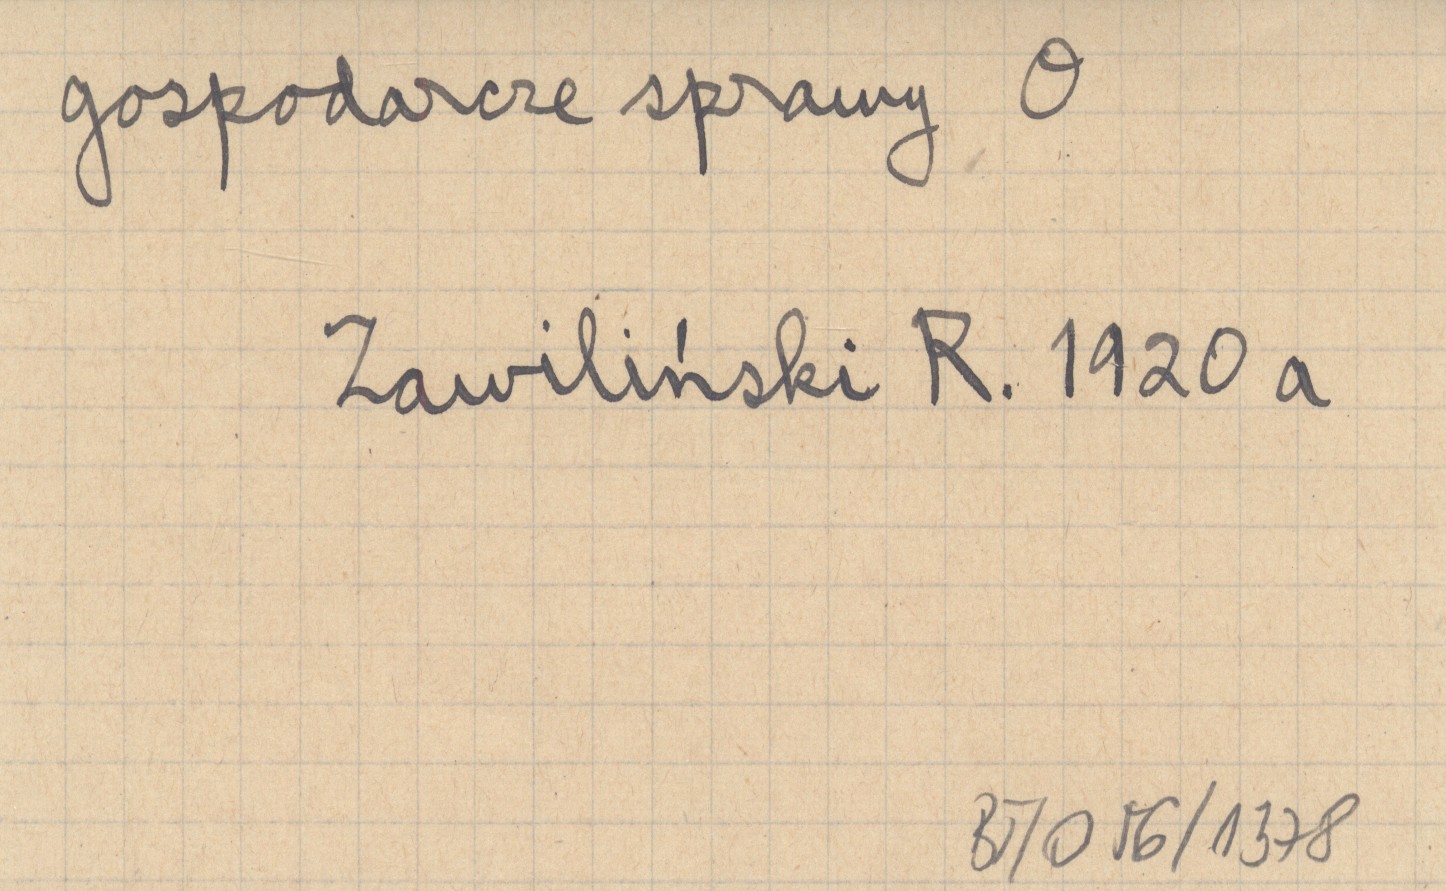 gospodarcze sprawy O
Zawiliński R. 1920 a
BT/O 156/1378